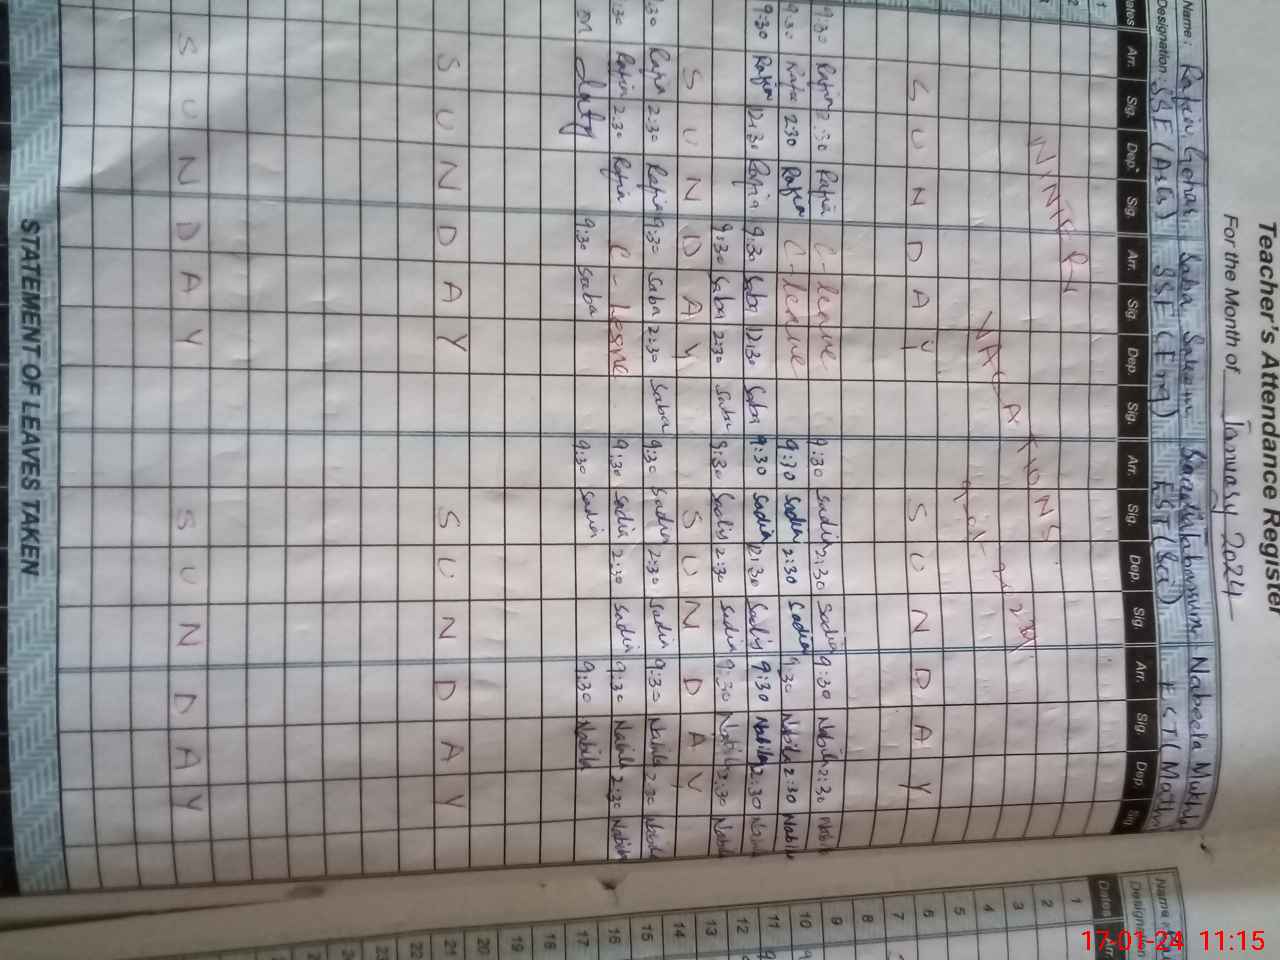 Teacher's Attendance Register
For the Month of January 2024
Name: Rafia Gohar Saba Saleem Sadia Tabassum Nabeela Mukht
Designation: SSE (Arts) SSE (Eng) EST (Sci) EST (Math
Dates Arr. Sig. Dep. Sig. Arr. Sig. Dep. Sig. Arr. Sig. Dep. Sig. Arr. Sig. Dep. Sig
1
2
WINTER
VACATIONS
SUNDAY SUNDAY
9:30 Rafia 2:30 Rafia C-leave 9:30 Sadia 2:30 Sadia 9:30 Nabila 2:30 Nabila
9:30 Rafia 2:30 Rafia C-leave 9:30 Sadia 2:30 Sadia 9:30 Nabila 2:30 Nabila
9:30 Rafia 12:30 Rafia 9:30 Saba 12:30 Saba 9:30 Sadia 12:30 Sadia 9:30 Nabila 12:30 Nabila
9:30 Saba 2:30 Saba 9:30 Sadia 2:30 Sadia 9:30 Nabila 2:30 Nabila
SUNDAY SUNDAY
9:30 Rafia 2:30 Rafia 9:30 Saba 2:30 Saba 9:30 Sadia 2:30 Sadia 9:30 Nabila 2:30 Nabila
9:30 Rafia 2:30 Rafia C-leave 9:30 Sadia 2:30 Sadia 9:30 Nabila 2:30 Nabila
on duty 9:30 Saba 9:30 Sadia 9:30 Nabila
SUNDAY SUNDAY
SUNDAY SUNDAY
STATEMENT OF LEAVES TAKEN
Name
Design
Dates Arr
1
2
3
4
5
6
7
8
9
10
11
12
13
14
15
16
17
18
19
20
21
22
23
17-01-24 11:15